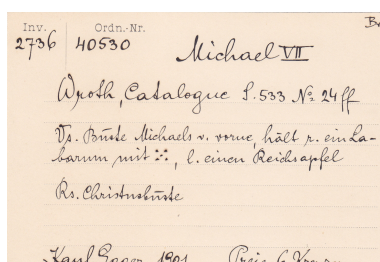 Inv. Ordn.-Nr.
2736 40530
Michael VII
Wroth, Catalogue S. 533 No. 24 ff
Vs. Büste Michaels v. vorne, hält r. ein La-
barum mit, l. einen Reichsapfel
Rs. Christusbüste
Karl Egger 1901 Preis 6 Kronen